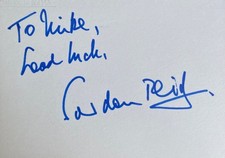 To Mike,
Good luck,
Gordon Reid.